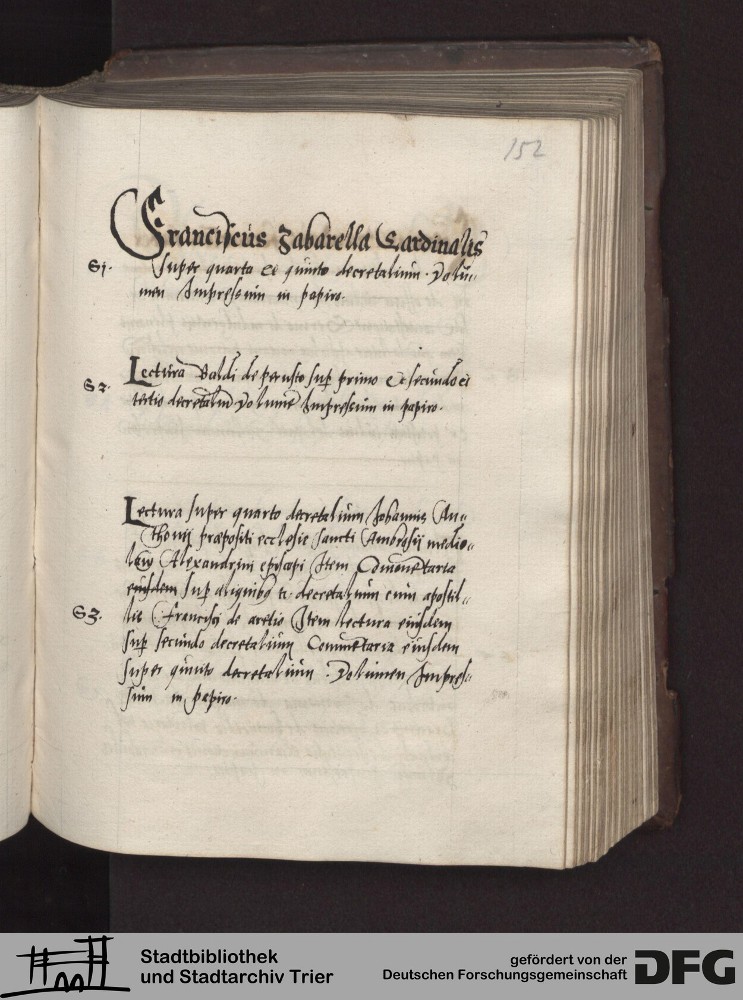 152
Franciscus Zabarella Cardinalis
S1. Super quarto et quinto decretalium. Volu=
men Impressum in papiro.
S2. Lectura Baldi de perusio sup primo et secundo et
tertio decretaliu Volume Impressum in papiro.
Lectura super quarto decretalium Johannis An=
thonij præpositi ecclesie sancti Ambrosij medio=
Alexandrini episcopi Item Comentaria
eiusdem sup aliquibus ti. decretalium cum apostil=
S3. lis Francisci de aretio Item lectura eiusdem
sup secundo decretalium Commetaria eiusdem
super quinto decretalium. Volumen Impres=
sum in papiro.
Stadtbibliothek
und Stadtarchiv Trier
gefördert von der
Deutschen Forschungsgemeinschaft
DFG